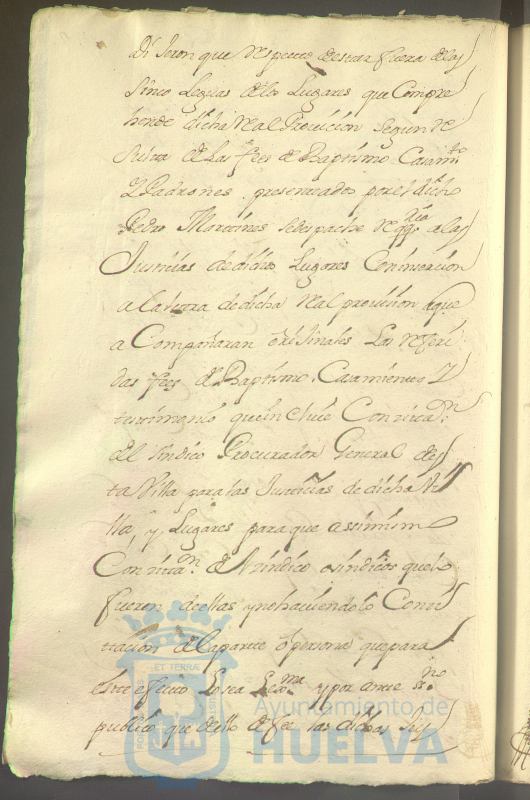 Dijeron que respecto de estar fuera de las
sinco Leguas de los Lugares que Compre
hende dicha Real Provicion segun re
sulta de las fees de Baptismo Casamto
Y Padrones presentados por el dicho
Pedro Martines se despache reqqrio a las
Justicias de dichos Lugares Con insercion
a la letra de dicha Real provision a que
a Compañaran orijinales Las referi
das fees de Baptismo, Casamientos Y
testimonio que incluie Con citaon
del sindico Procurador General de es
ta Villa para las Justicias de dicha Vi
lla, y, Lugares para que assimismo
Con citaon de sindico o sindicos que lo
fueren de ellas y no haviendolo Con ci
tacion de la parte o persona que para
este efecto Lo sea y por ante srno
publico que de ello de fee las dichas
ET TERRÆ
Ayuntamiento de
HUELVA